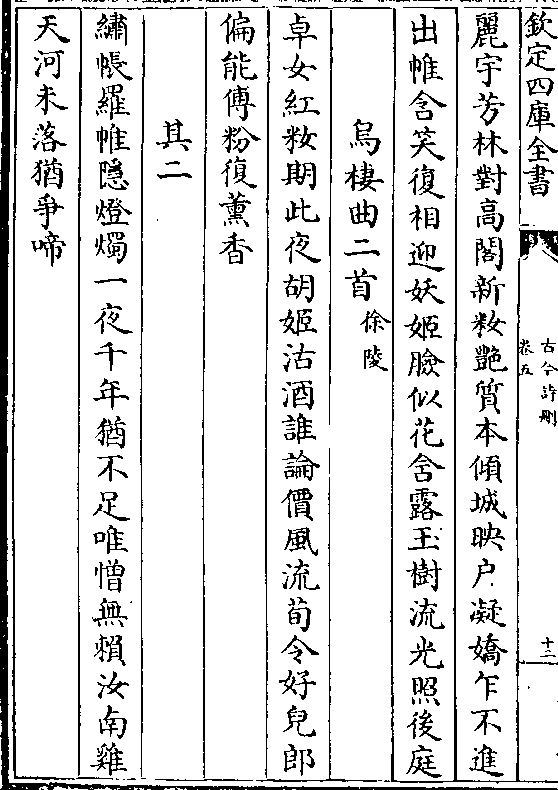 欽定四庫全書
古今詩刪
卷五
十二
麗宇芳林對高閣新妝艷質本傾城映户凝嬌乍不進
出帷含笑復相迎妖姬臉似花含露玉樹流光照後庭
烏棲曲二首 徐陵
卓女紅妝期此夜胡姬沽酒誰論價風流荀令好兒郎
偏能傅粉復薰香
其二
繡帳羅帷隱燈燭一夜千年猶不足唯憎無賴汝南雞
天河未落猶爭啼